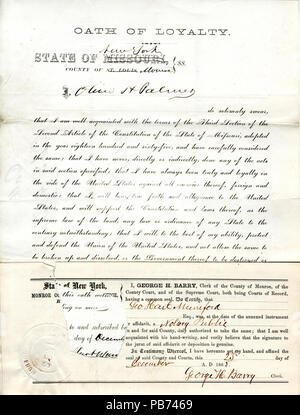 OATH OF LOYALTY.
New York
STATE OF MISSOURI, } SS.
COUNTY OF ST. LOUIS, Monroe
I, Oliver H Palmer
do solemnly swear,
that I am well acquainted with the terms of the Third Section of the
Second Article of the Constitution of the State of Missouri, adopted
in the year eighteen hundred and sixty-five, and have carefully considered
the same; that I have never, directly or indirectly, done any of the acts
in said section specified; that I have always been truly and loyally on
the side of the United States against all enemies thereof, foreign and
domestic; that I will bear true faith and allegiance to the United
States, and will support the Constitution and laws thereof, as the
supreme law of the land, any law or ordinance of any State to the
contrary notwithstanding; that I will, to the best of my ability, protect
and defend the Union of the United States, and not allow the same to
be broken up and dissolved, or the Government thereof to be destroyed or
State of New York,
MONROE CO
I, GEORGE H. BARRY, Clerk of the County of Monroe, of the
County Court, and of the Supreme Court, both being Courts of Record,
having a common seal, Do Certify, that
Geo Hart Mumford
Esq., was, at the date of the annexed instrument
affidavit, a Notary Public
and for said County, duly authorized to take the same; that I am well
acquainted with his hand-writing, and verily believe that the signature to
the jurat of said affidavit or deposition is genuine.
In Testimony Whereof, I have hereunto set my hand, and affixed the
seal of said County and Courts, this 23 day of
December A. D. 186
George H. Barry Clerk.
and subscribed before
day of December
alamy
PB7469